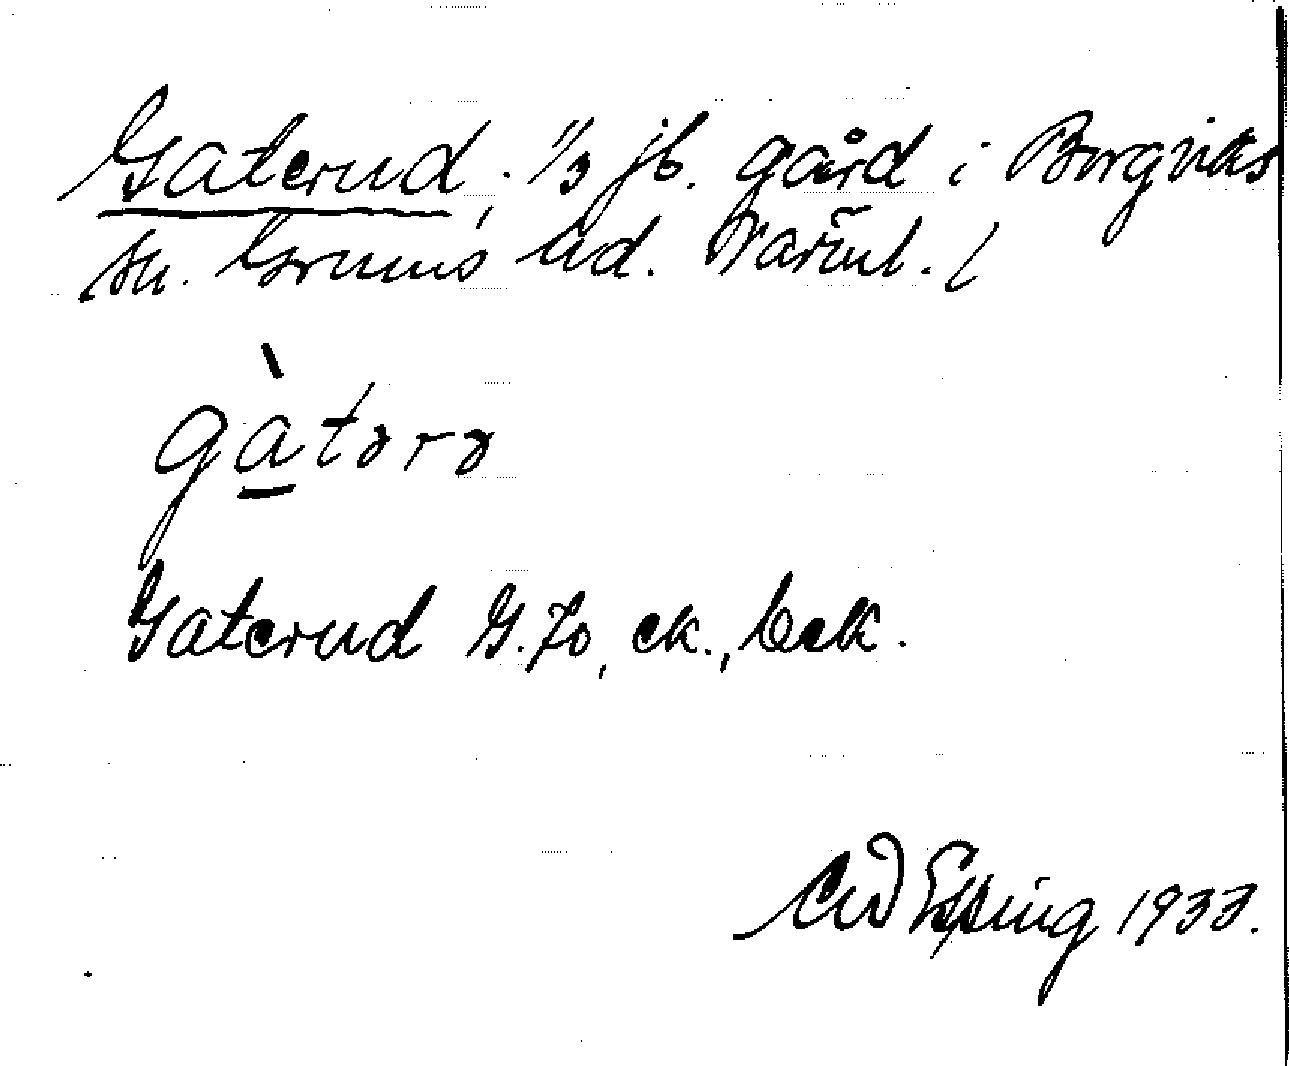 Gaterud, 1/3 jb. gård i Borgviks
sn. Grums hd. Värml. l
gàtərə
Gaterud G. Jo, ek., beck.
1933.